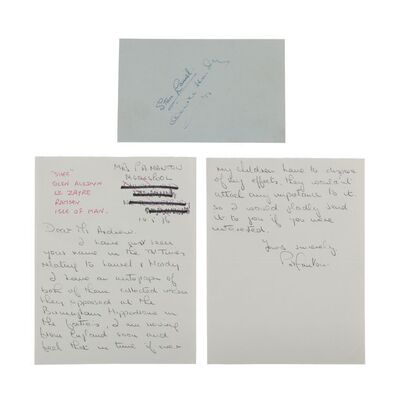 Stan Laurel
Oliver Hardy
MRS P.A. MANTON
"SHEE"
GLEN AULDYN
LE ZAYRE
RAMSEY
ISLE OF MAN.
Dear Mr Andrew.
I have just seen
your name in the TV Times
relating to Laurel & Hardy
I have an autograph of
both of them collected when
they appeared at the
Birmingham Hippodrome in
the forties, I am moving
from England soon and
feel that in time if
my children have to dispose
of my effects, they wouldn't
attach any importance to it.
so I would gladly send
it to you if you were
interested.
Yours sincerely